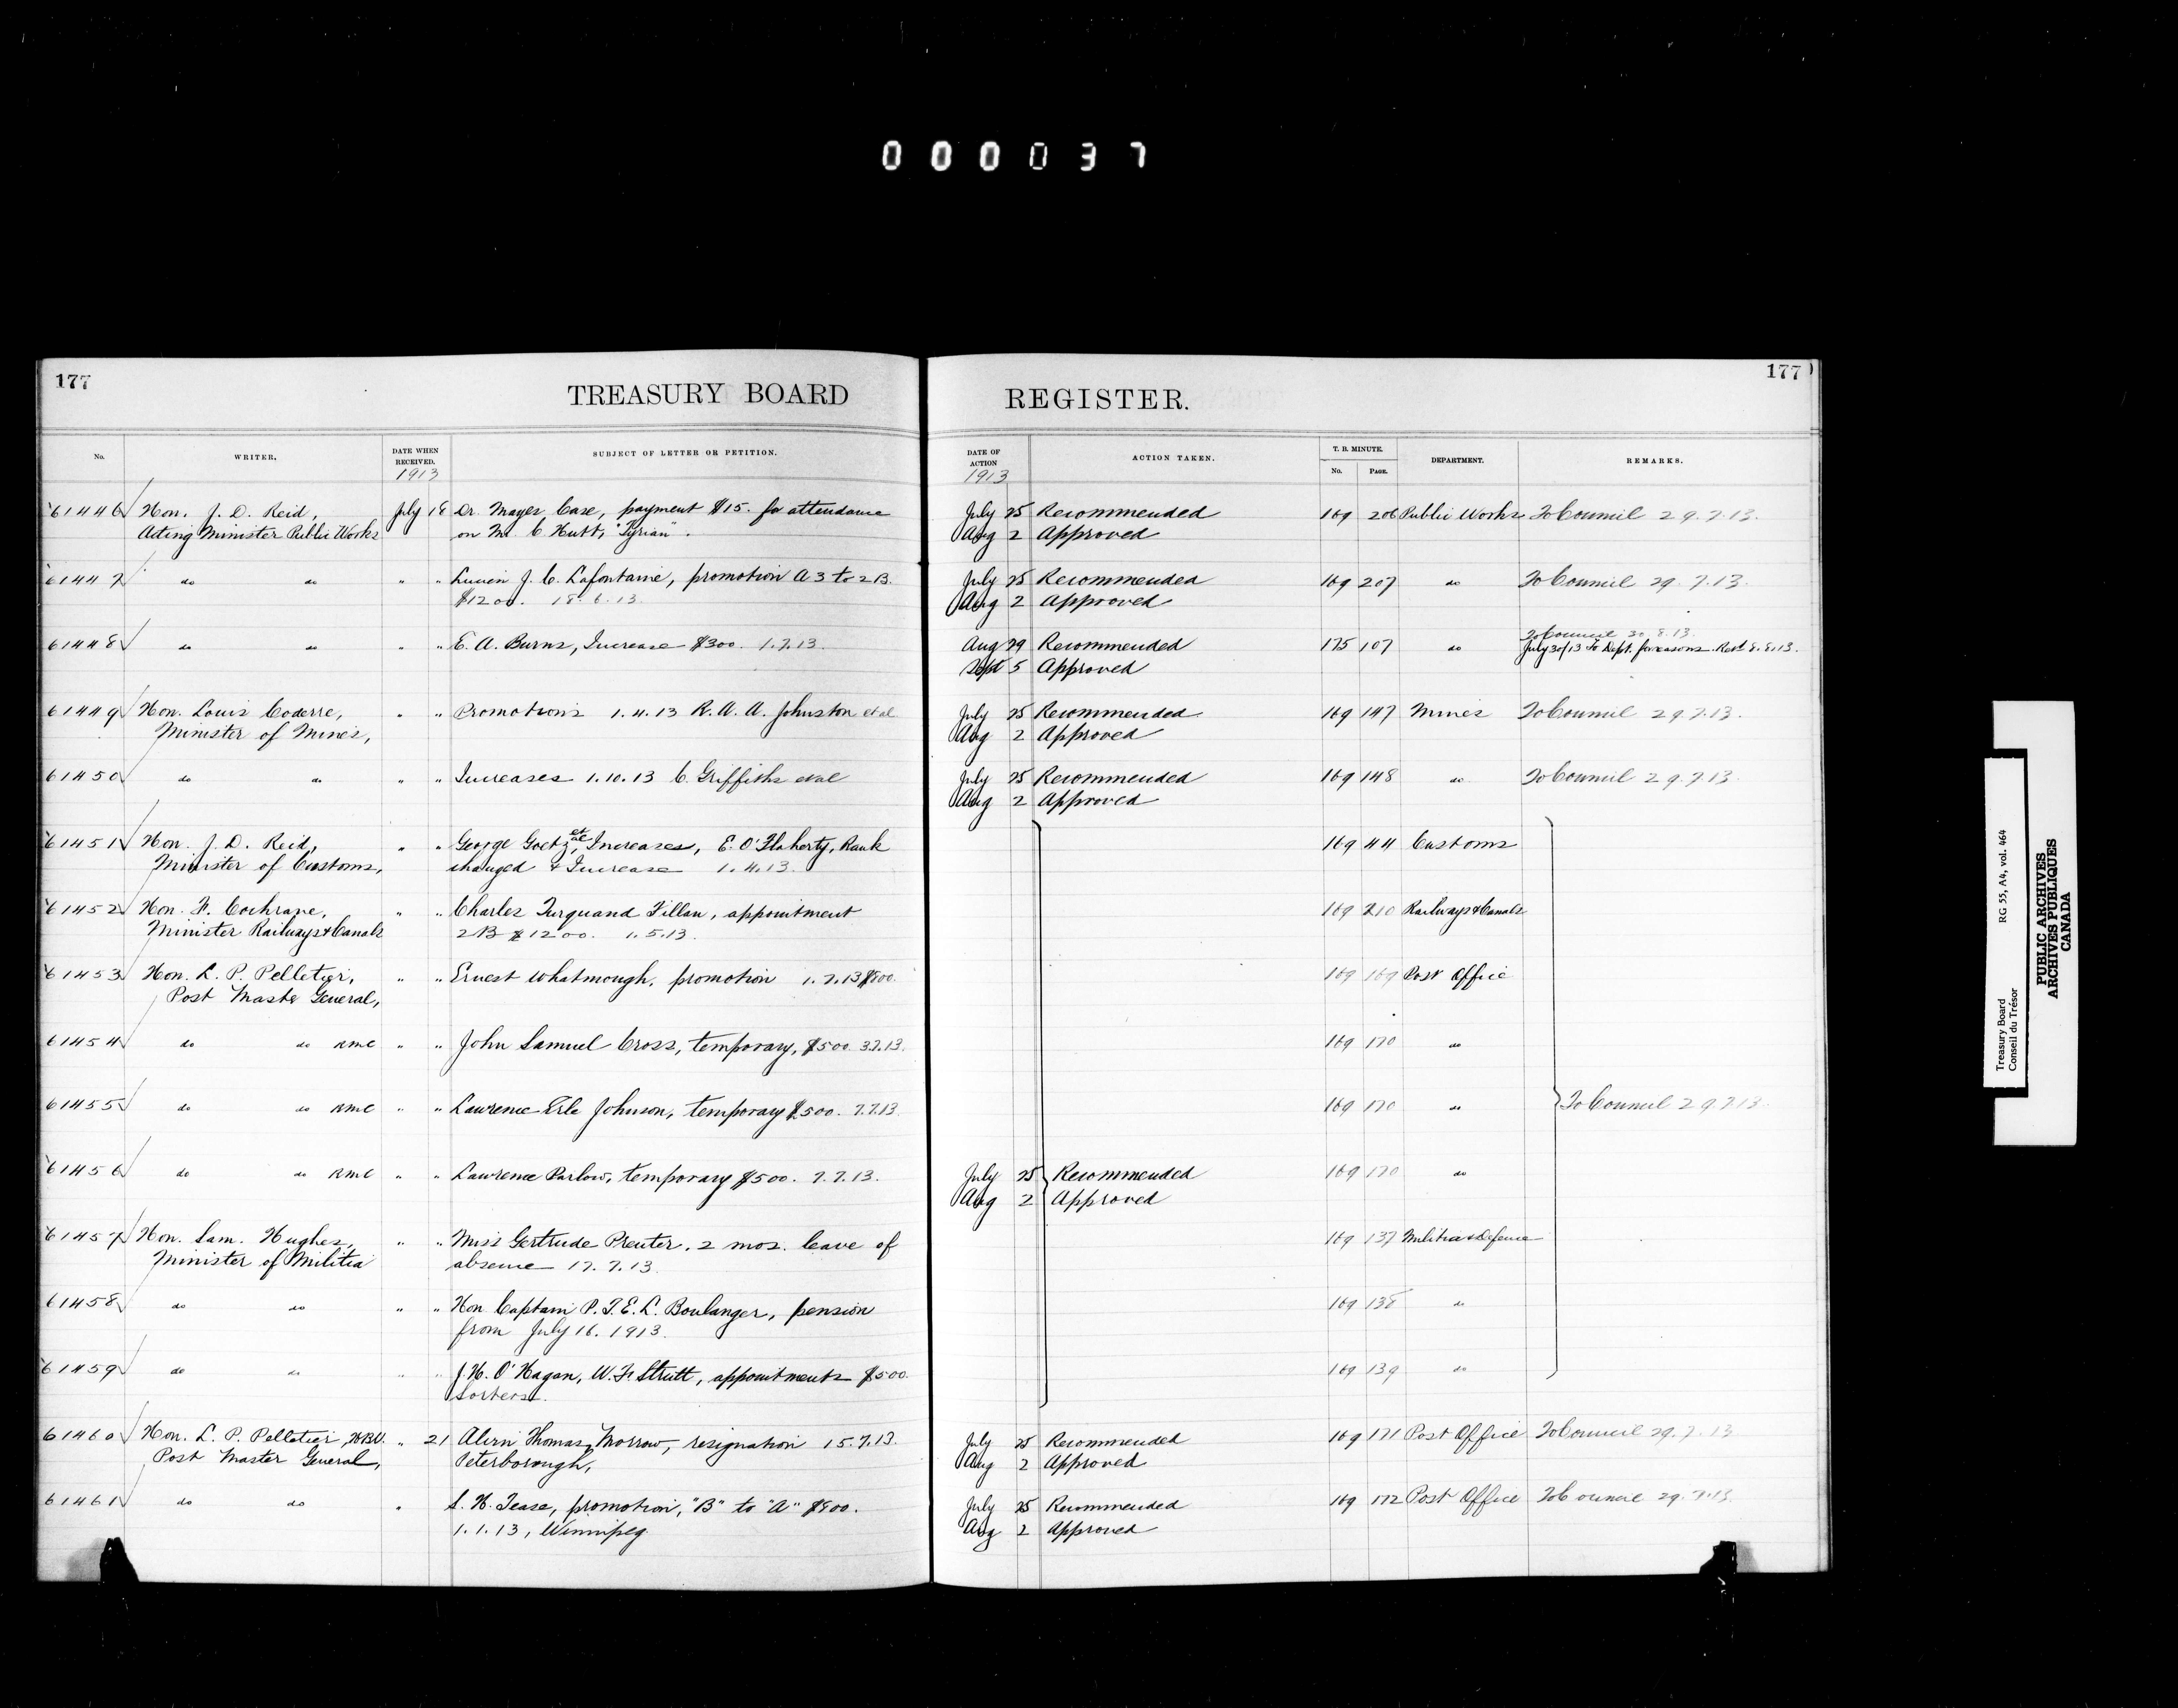 000037
177
TREASURY BOARD
REGISTER.
177
No.
WRITER,
DATE WHEN RECEIVED.
1913
SUBJECT OF LETTER OR PETITION.
DATE OF ACTION
1913
ACTION TAKEN.
T. B. MINUTE.
No.
PAGE.
DEPARTMENT.
REMARKS.
61446 Hon. J. D. Reid, July 18 Dr. Mayes Case, payment $15. for attendance July 25 Recommended 169 206 Public Works To Council 29.7.13.
Acting Minister Public Works on Mr. C Hutt, "Tyrian". Aug 2 Approved
61447 do do " " Lucien J. C. Lafontaine, promotion A 3 to 2 B. July 25 Recommended 169 207 do To Council 29.7.13.
$1200. 18.6.13. Aug 2 Approved
To Council 30.8.13.
61448 do do " " E. A. Burns, Increase $300. 1.7.13. Aug 29 Recommended 175 107 do July 30/13 To Dept. for reasons. Recd 8.8.13.
Sept 5 Approved
61449 Hon. Louis Coderre, " " Promotions 1.4.13 R. A. A. Johnston et al July 25 Recommended 169 147 Mines To Council 29.7.13.
Minister of Mines, Aug 2 Approved
61450 do do " " Increases 1.10.13 C. Griffiths et al July 25 Recommended 169 148 do To Council 29.7.13.
Aug 2 Approved
61451 Hon. J. D. Reid, " " George Goetz, et al Increases, E. O'Flaherty, Rank 169 44 Customs
Minister of Customs, changed & Increase 1.4.13.
61452 Hon. F. Cochrane, " " Charles Turquand Fillan, appointment 169 210 Railways & Canals
Minister Railways & Canals 2 B $1200. 1.5.13.
61453 Hon. L. P. Pelletier, " " Ernest Whatmough, promotion 1.7.13 $800. 169 169 Post Office
Post Master General,
61454 do do RMC " " John Samuel Cross, temporary, $500. 3.7.13. 169 170 do
61455 do do RMC " " Lawrence Erle Johnson, temporary $500. 7.7.13. 169 170 do To Council 29.7.13.
61456 do do RMC " " Lawrence Parlow, temporary $500. 7.7.13. July 25 Recommended 169 170 do
Aug 2 Approved
61457 Hon. Sam. Hughes, " " Miss Gertrude Preuter, 2 mos. leave of 169 137 Militia & Defence
Minister of Militia absence 17.7.13.
61458 do do " " Hon Captain P. T. E. L. Boulanger, pension 169 138 do
from July 16. 1913.
61459 do do " " J. H. O'Hagan, W. F. Strutt, appointments $500. 169 139 do
Sorters.
61460 Hon. L. P. Pelletier, " 21 Alvin Thomas Morrow, resignation 15.7.13. July 25 Recommended 169 171 Post Office To Council 29.7.13
Post Master General, Peterborough, Aug 2 Approved
61461 do do " S. H. Tease, promotion, "B" to "A" $900. July 25 Recommended 169 172 Post Office To Council 29.7.13.
1.1.13, Winnipeg. Aug 2 Approved
Treasury Board RG 55, A4, vol. 464
Conseil du Trésor
PUBLIC ARCHIVES
ARCHIVES PUBLIQUES
CANADA